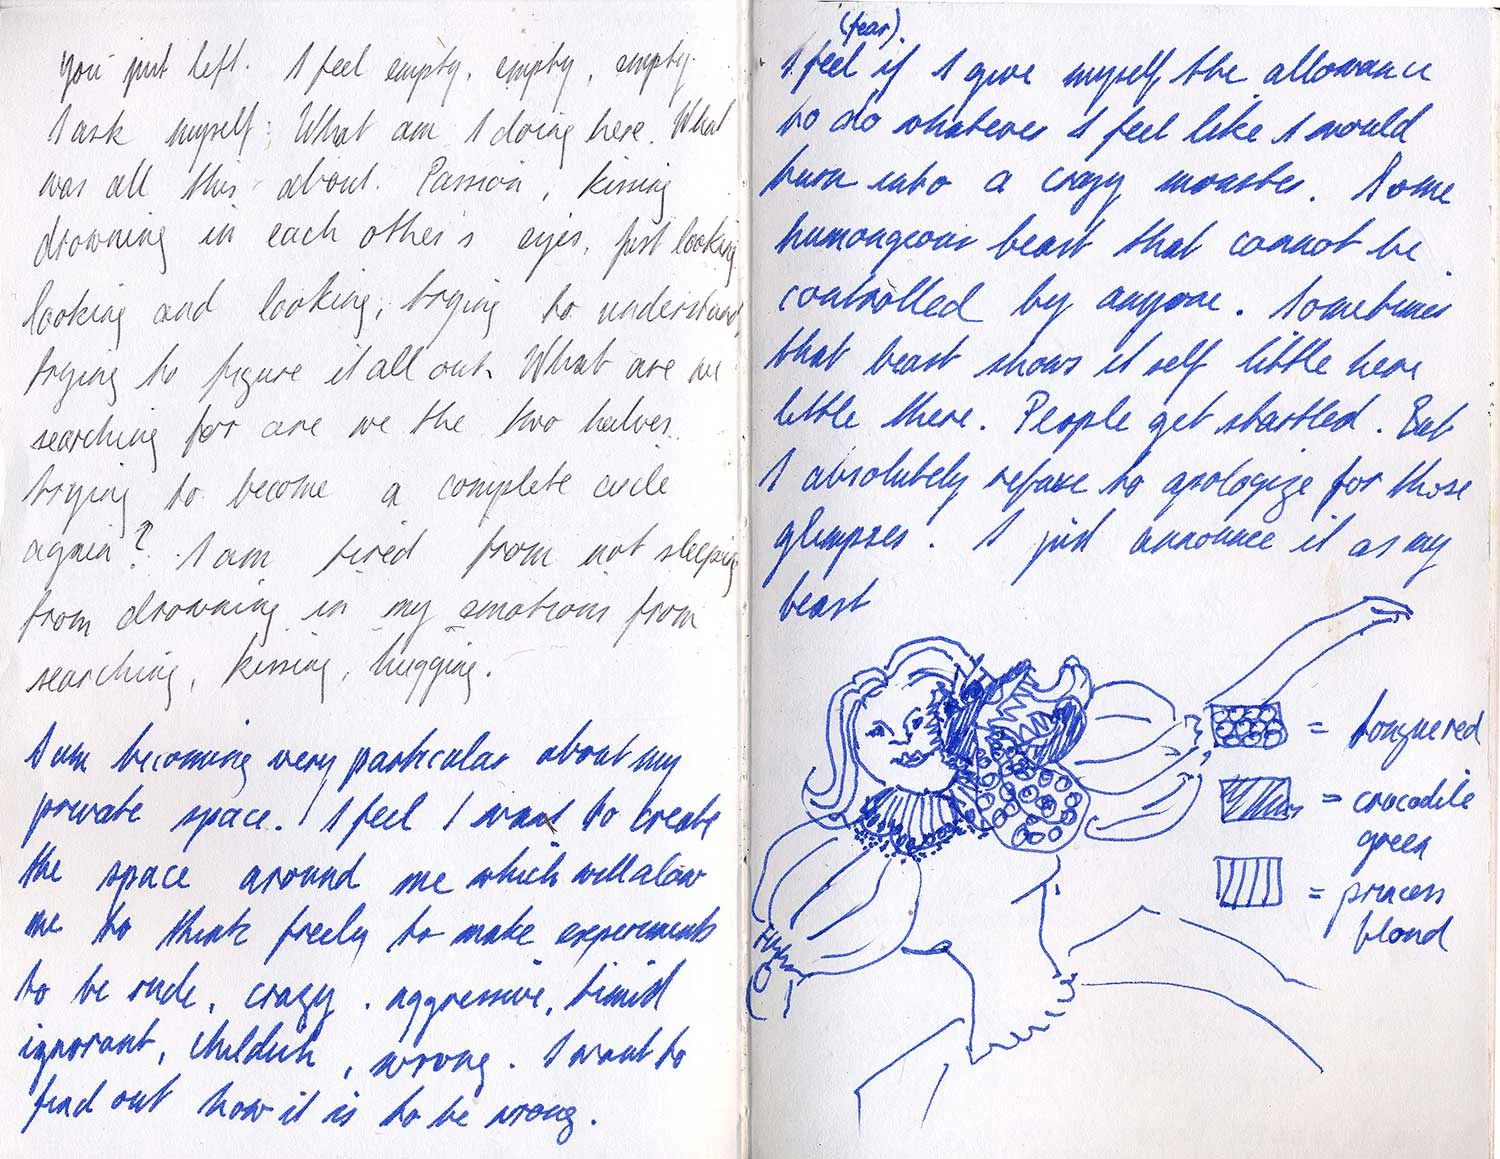 you just left. I feel empty, empty, empty.
I ask myself: What am I doing here. What
was all this about. Passion, kissing
drowning in each other's eyes, just looking
looking and looking, trying to understand,
trying to figure it all out. What are we
searching for are we the two halves
trying to become a complete circle
again? I am tired from not sleeping
from drowning in my emotions from
searching, kissing, hugging.
I am becoming very particular about my
private space. I feel I want to create
the space around me which will alow
me to think freely to make experiments
to be rude, crazy, aggressive, timid
ignorant, childish, wrong. I want to
find out how it is to be wrong.
(fear).
I feel if I give myself the allowance
to do whatever I feel like I would
turn into a crazy monster. Some
humongeous beast that cannot be
controlled by anyone. Sometimes
that beast shows it self little here
little there. People get startled. But
I absolutely refuse to apologize for those
glimpses. I just announce it as my
beast
= tongue red
= crocodile
green
= princess
blond